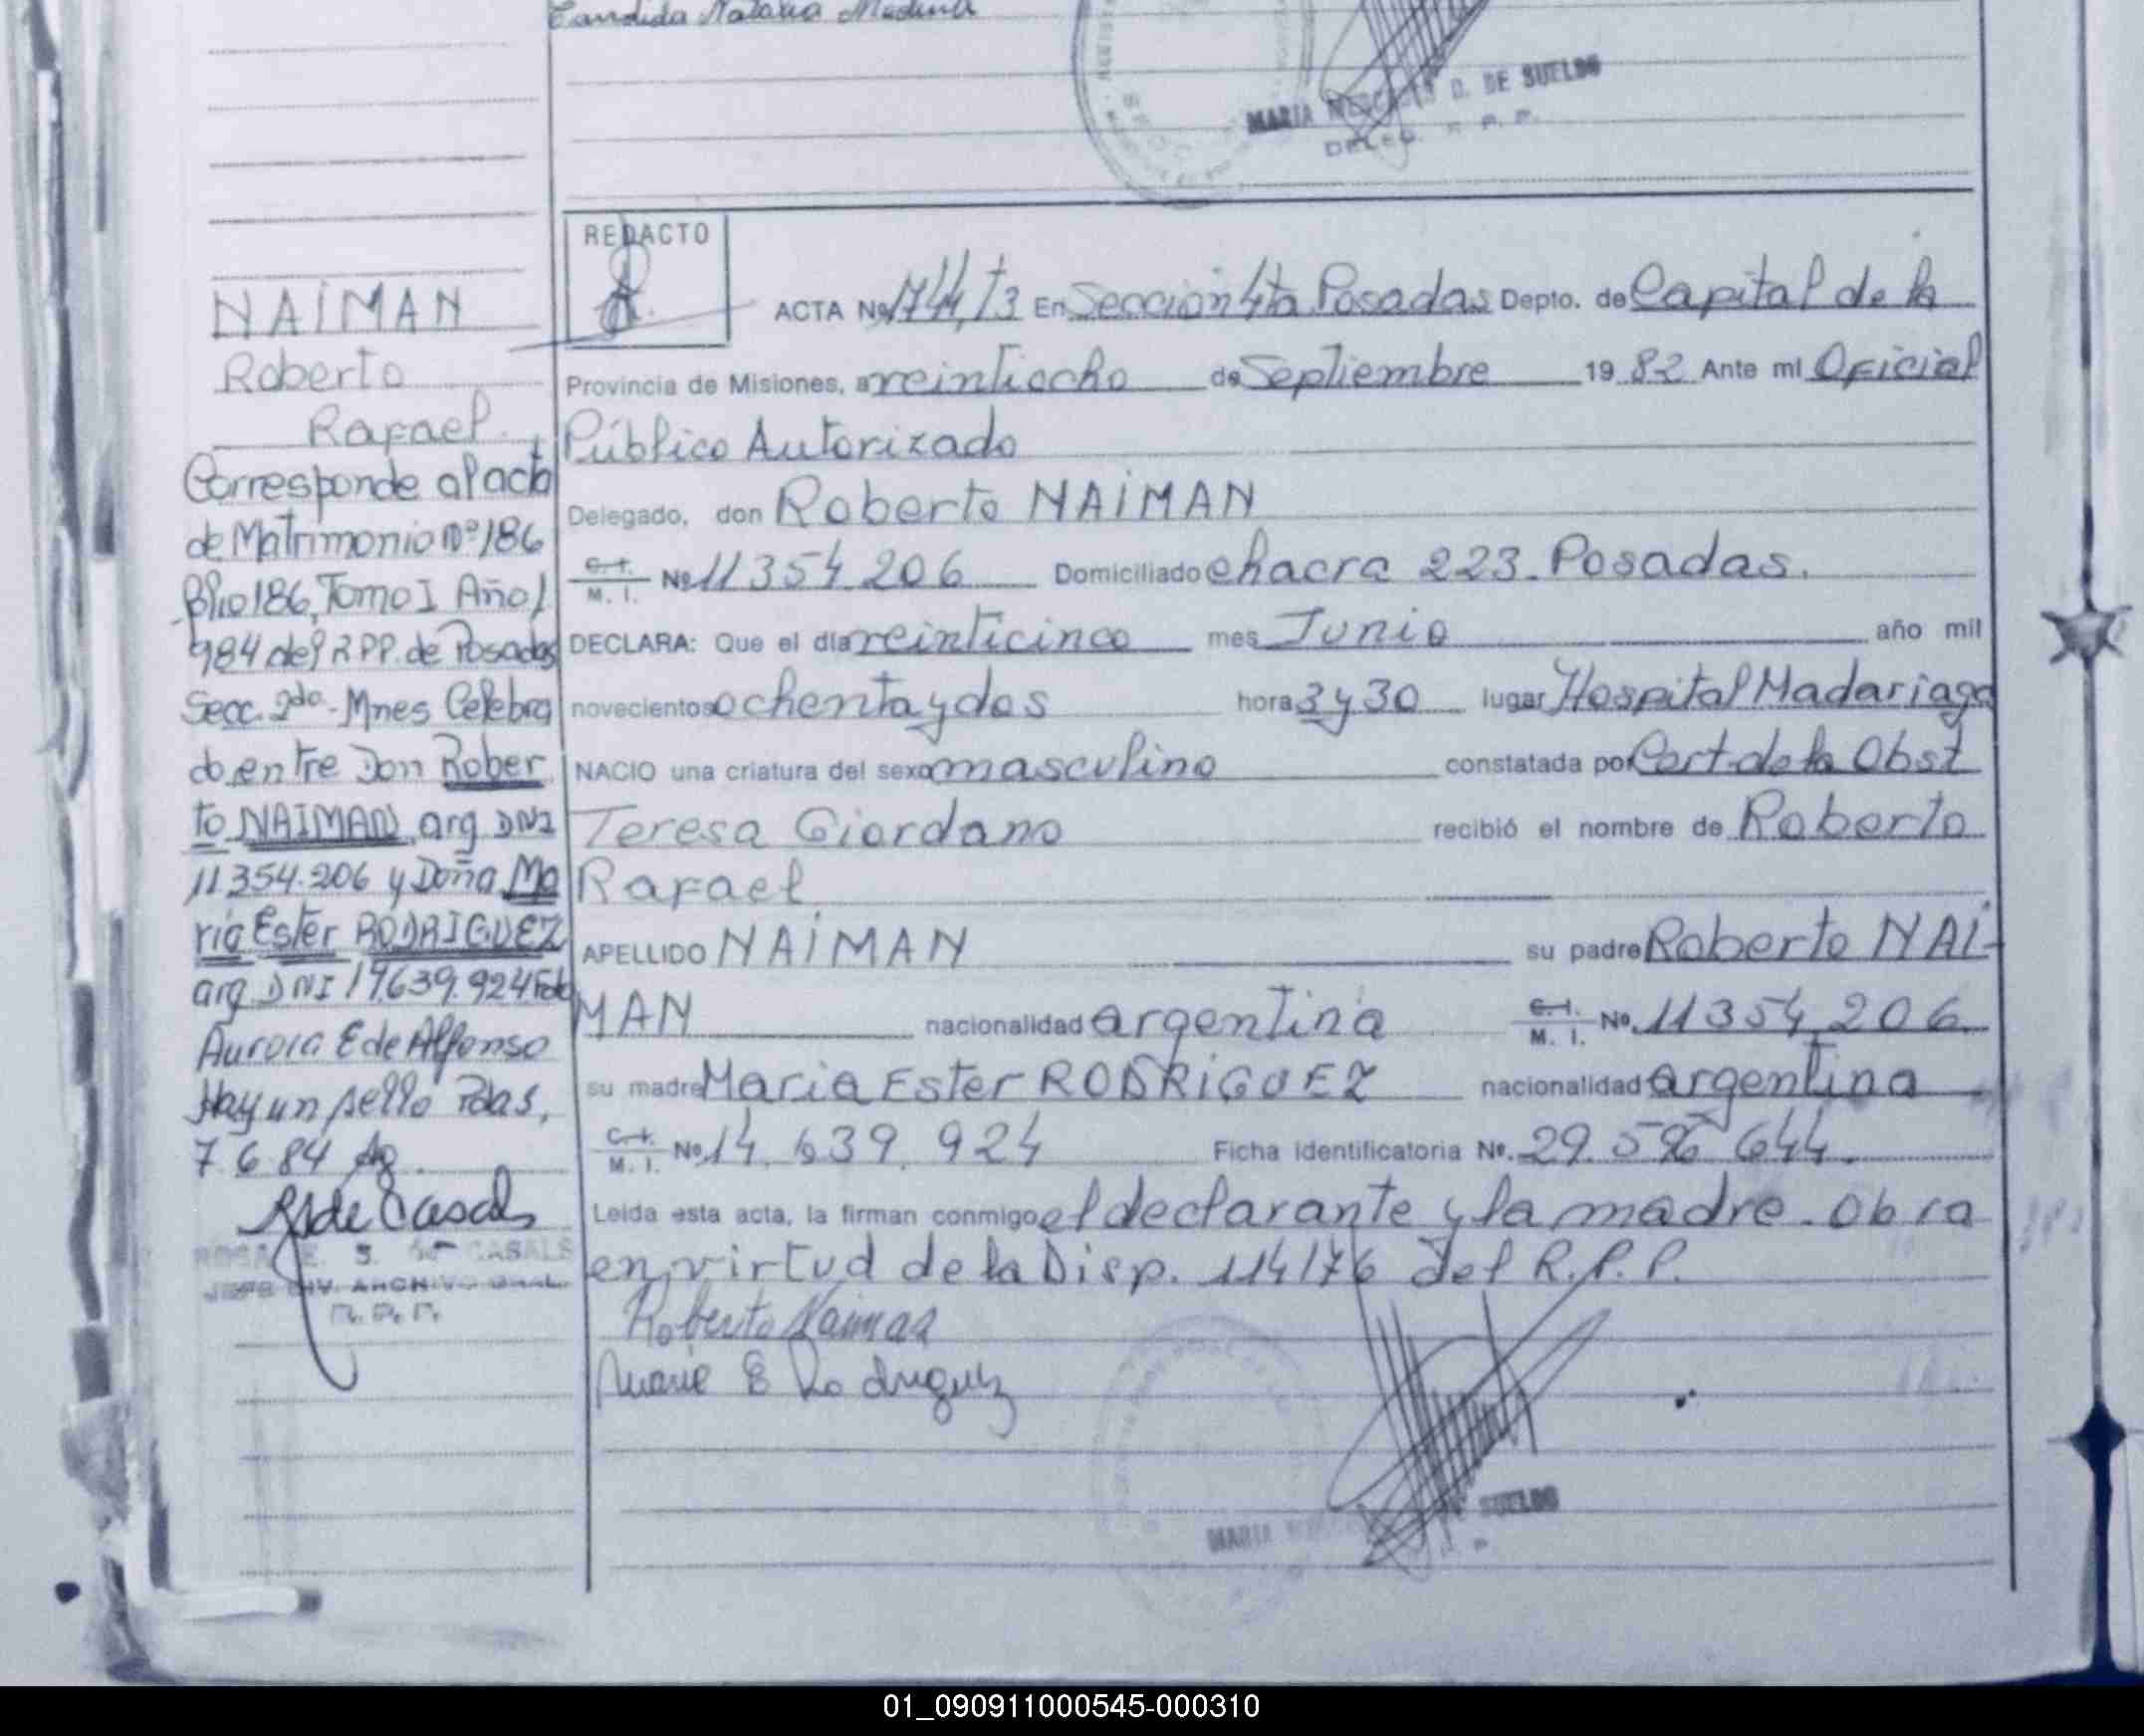 Candida Natalia Medina
MARIA D. DE SUELDO
DELEG. R. P. P.
REDACTO
NAIMAN
Roberto
Rafael.
ACTA Nº 1744/T3 En Sección 4ta Posadas Depto. de Capital de la
Provincia de Misiones, a veintiocho de Septiembre 19 82 Ante mí Oficial
Público Autorizado
Delegado, don Roberto NAIMAN
C. I. M. I. Nº 11 354 206 Domiciliado chacra 223. Posadas.
DECLARA: Que el día veinticinco mes Junio año mil
novecientos ochenta y dos hora 3 y 30 lugar Hospital Madariaga
NACIO una criatura del sexo masculino constatada por Cert. de la Obst
Teresa Giordano recibió el nombre de Roberto
Rafael
APELLIDO NAIMAN su padre Roberto NAI-
MAN nacionalidad argentina C. I. M. I. Nº 11 354 206
su madre Maria Ester RODRIGUEZ nacionalidad argentina
C. I. M. I. Nº 14. 639. 924 Ficha identificatoria Nº. 29. 596 644.
Leída esta acta, la firman conmigo el declarante y la madre. Obra
en virtud de la Disp. 114/76 del R.P.P.
Roberto Naiman
Maria E Rodriguez
MARIA SUELDO
Corresponde al acta
de Matrimonio Nº 186
folio 186, Tomo I Año 1
984 del R.P.P. de Posadas
Secc. 2da - Mnes Celebra
do entre Don Rober
to NAIMAN arg DNI
11 354.206 y Doña Ma
ria Ester RODRIGUEZ
arg DNI 14.639.924 Fdo
Aurora E de Alfonso
Hay un sello Pdas,
7 6 84
R S de Casals
ROSA E. S. de CASALS
JEFE DIV. ARCHIVO GRAL.
R. P. P.
01_090911000545-000310